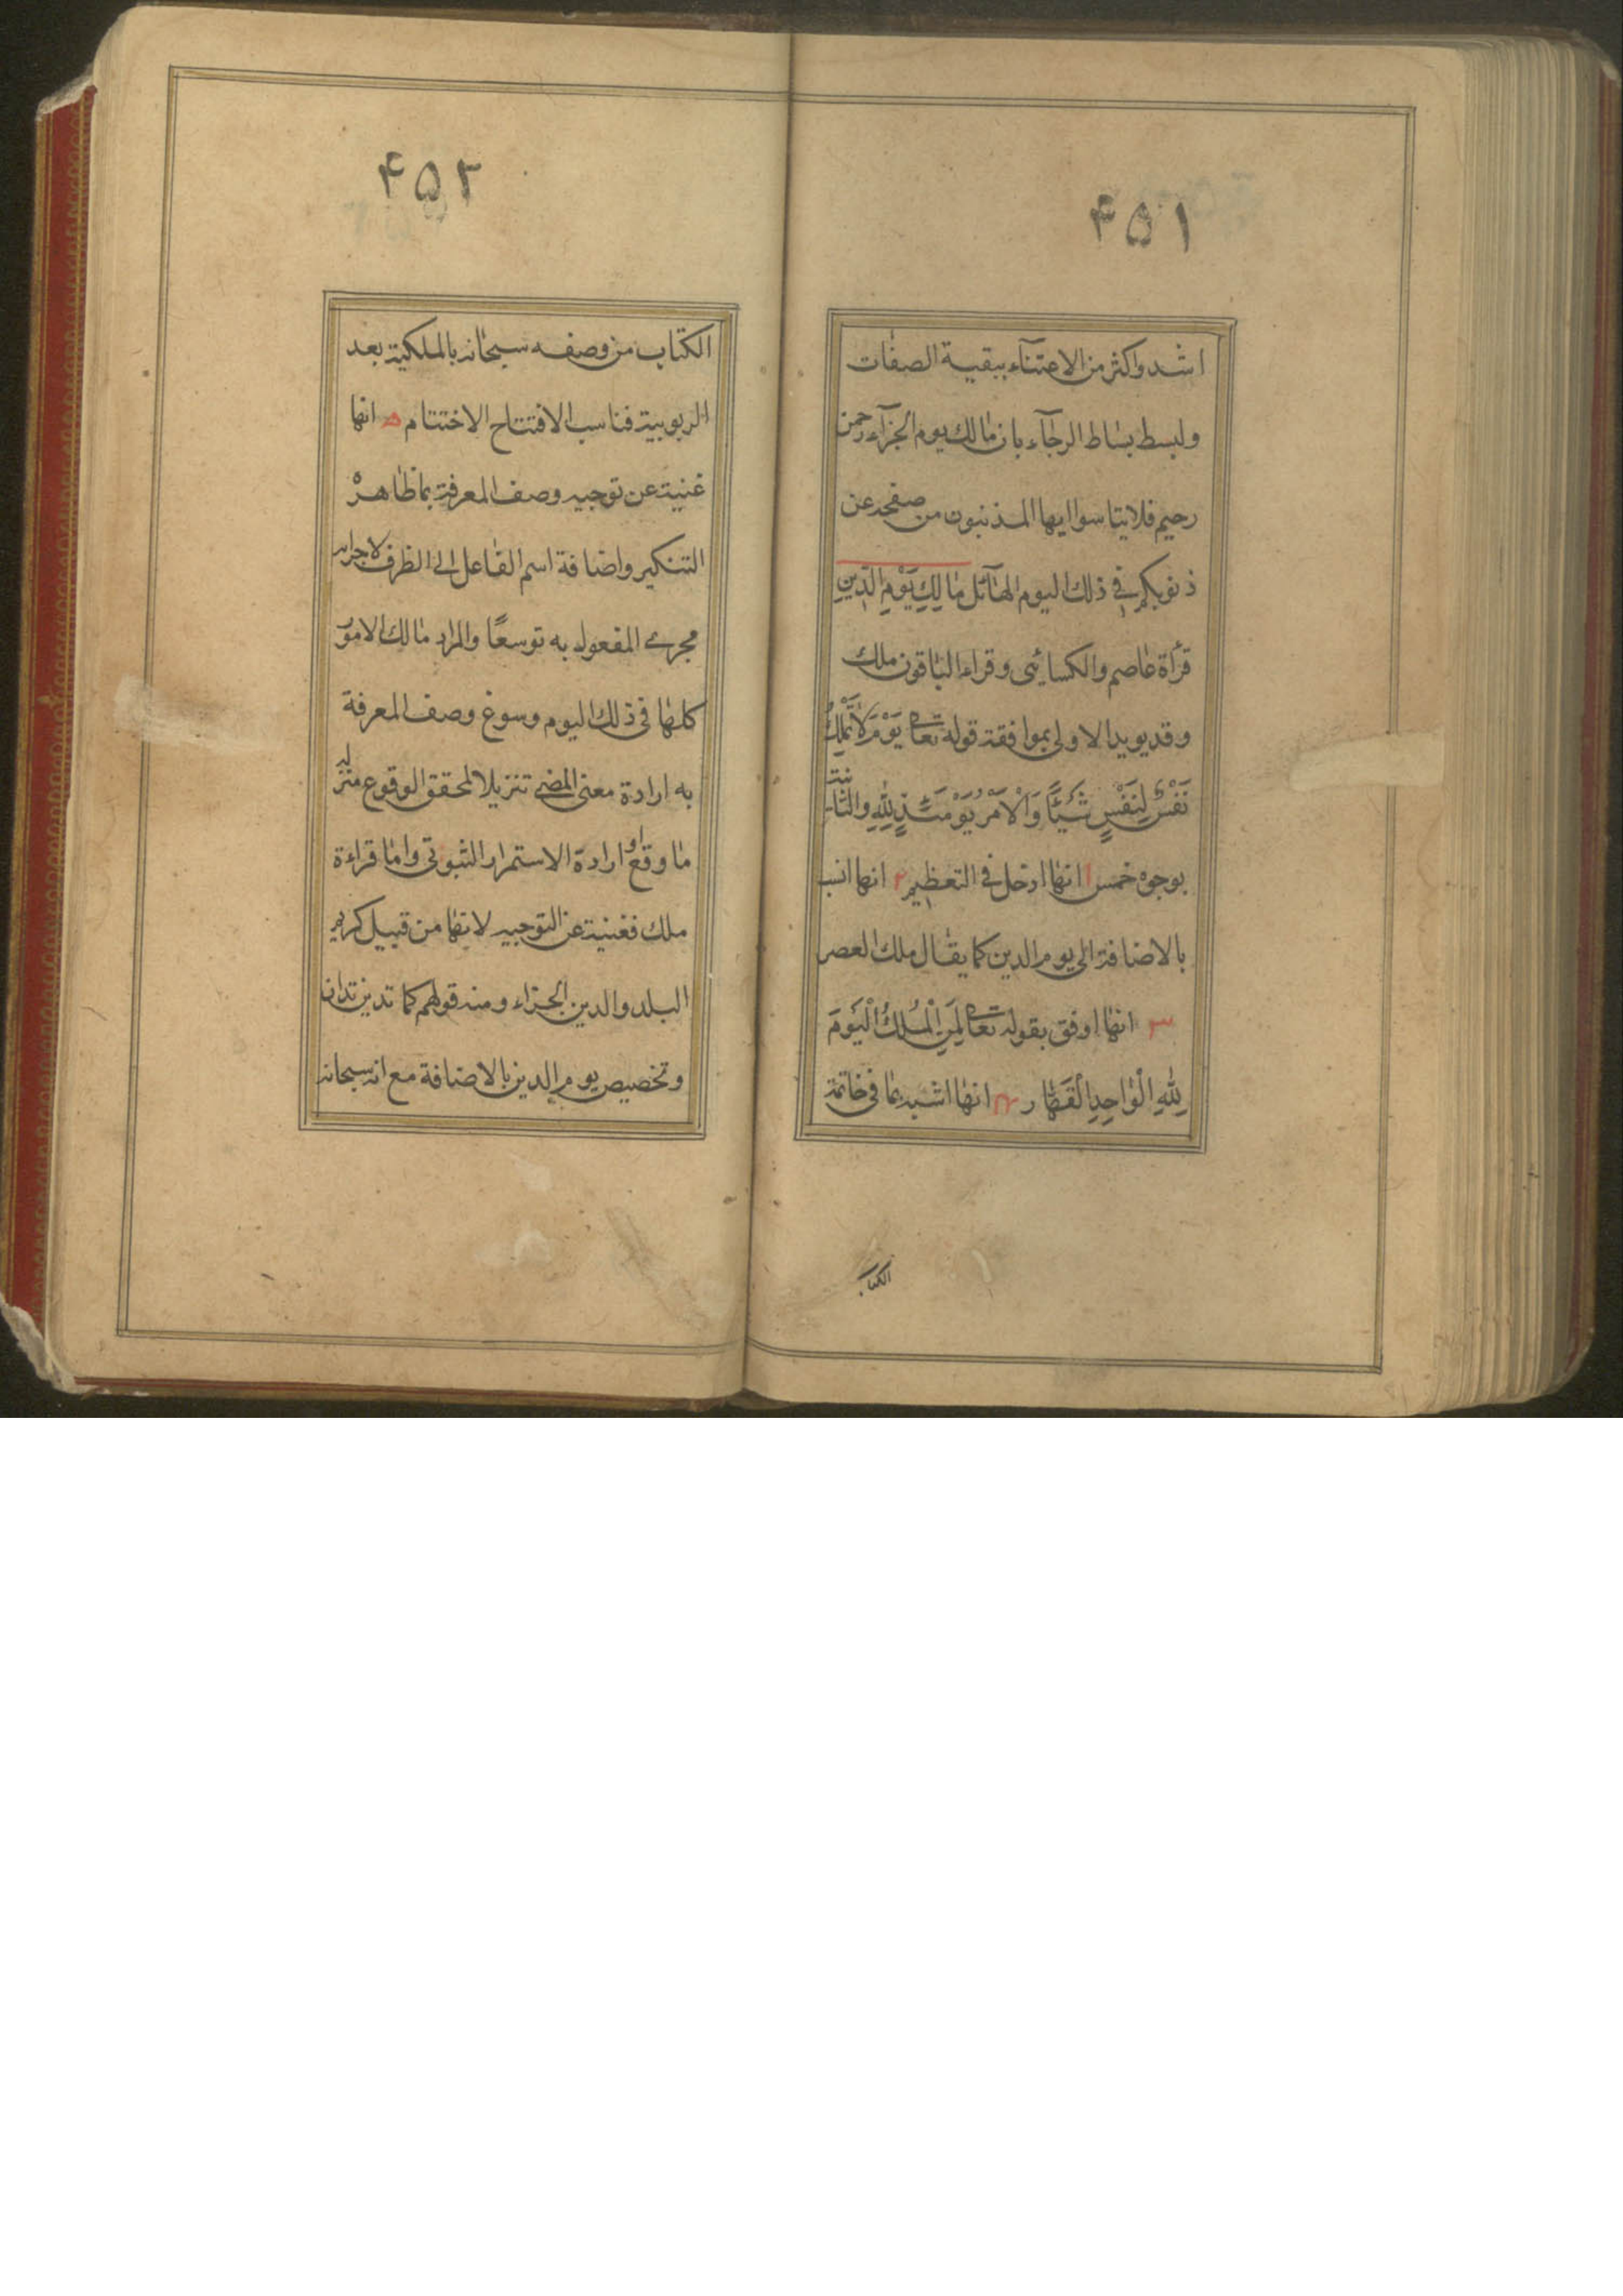 ۴۵۱
اشد واكثر من الاعتنآء ببقية الصفات
ولبسط بساط الرجآء بان مالك يوم الجزآء رحمن
رحيم فلا يتاسوا ايها المذنبون من صفحه عن
ذنوبكم في ذلك اليوم الهآئل مَالِكِ يَوْمِ الدّينِ
قرأة عاصم والكسائى وقراء الباقون ملك
وقد يويد الاولى بموافقة قوله تعا يَوْمَ لاَ تَمْلِكُ
نَفْسٌ لِنَفْسٍ شَيْئًا وَالْاَمْرُ يَوْمَئذٍ لِلّهِ والثانية
بوجوه خمس ١ انها ادخل فى التعظيم ٢ انها انسب
بالاضافة الى يوم الدين كما يقال ملك العصر
٣ انها اوفق بقوله تعا لِمَنِ الْمُلْكُ الْيَوْمَ
لِلّهِ الْوَاحِدِ الْقَهَّار ۴ انها اشبه بما فى خاتمة
الكتاب
۴۵۲
الكتاب من وصفه سبحانه بالملكية بعد
الربوبية فناسب الافتتاح الاختتام ۵ انها
غنية عن توجيه وصف المعرفة بما ظاهره
التنكير واضافة اسم الفاعل الى الظرف لاجرائه
مجرى المفعول به توسعًا والمراد مالك الامور
كلها فى ذلك اليوم وسوغ وصف المعرفة
به ارادة معنى المضى تنزيلا لمحقق الوقوع منزلة
ما وقع او ارادة الاستمرار الثبوتى واما قراءة
ملك فغنية عن التوجيه لانها من قبيل كريم
البلد والدين الجزاء ومنه قولهم كما تدين تدان
وتخصيص يوم الدين بالاضافة مع انه سبحانه